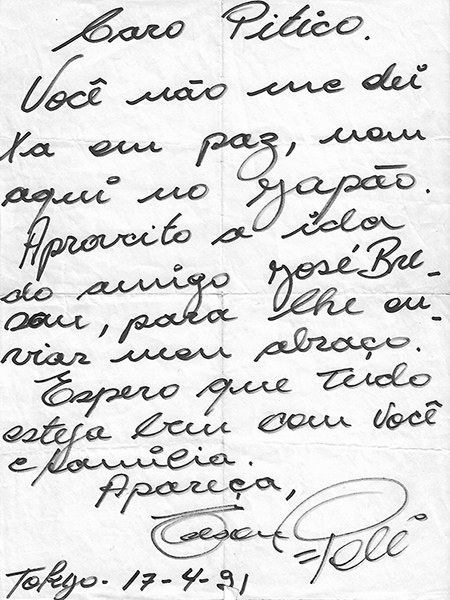 Caro Pitico.
Você não me dei
xa em paz, nem
aqui no Japão.
Aproveito a ida
do amigo José Bre-
san, para lhe en-
viar meu abraço.
Espero que tudo
esteja bem com você
e família.
Apareça,
Edson = Pelé
Tokyo. 17-4-91